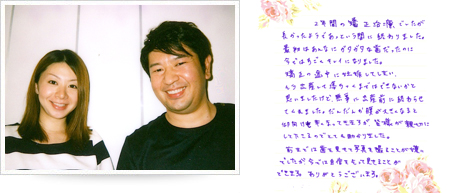 2年間の矯正治療でしたが
長かったようであっという間に終わりました。
最初はあんなにガタガタな歯だったのに
今ではきちんとキレイになりました。
矯正の途中に妊娠してしまい、
もう出産して落ち着くまではできないかと
思いましたけど、無事に出産前に終わらせ
てくれました。だんだんお腹が大きくなると
してくださるのでとても助かりました。
前までは歯を見せて写真を撮ることが嫌
でしたが今では自信をもって見せることが
できます。ありがとうございます。